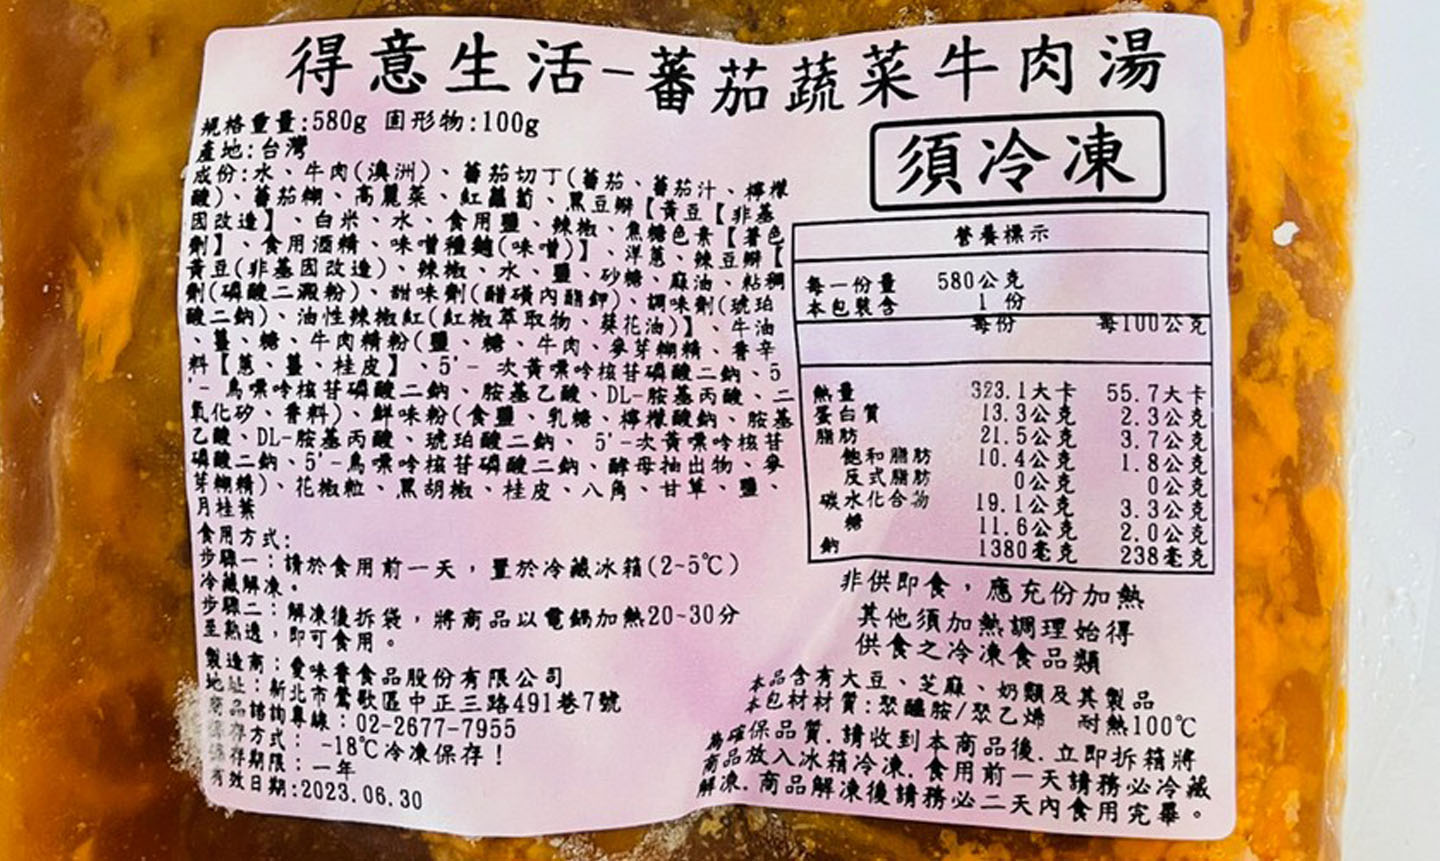 得意生活-蕃茄蔬菜牛肉湯
規格重量:580g 固形物:100g
產地:台灣
成份:水、牛肉(澳洲)、蕃茄切丁(蕃茄、蕃茄汁、檸檬
酸)、蕃茄糊、高麗菜、紅蘿蔔、黑豆瓣【黃豆【非基
因改造】、白米、水、食用鹽、辣椒、焦糖色素【著色
劑】、食用酒精、味噌種麴(味噌)】、洋蔥、辣豆瓣【
黃豆(非基因改造)、辣椒、水、鹽、砂糖、麻油、粘稠
劑(磷酸二澱粉)、甜味劑(醋磺內酯鉀)、調味劑(琥珀
酸二鈉)、油性辣椒紅(紅椒萃取物、葵花油)】、牛油
、薑、糖、牛肉精粉(鹽、糖、牛肉、麥芽糊精、香辛
料【蔥、薑、桂皮】、5'-次黃嘌呤核苷磷酸二鈉、5
'-鳥嘌呤核苷磷酸二鈉、胺基乙酸、DL-胺基丙酸、二
氧化矽、香料)、鮮味粉(食鹽、乳糖、檸檬酸鈉、胺基
乙酸、DL-胺基丙酸、琥珀酸二鈉、5'-次黃嘌呤核苷
磷酸二鈉、5'-鳥嘌呤核苷磷酸二鈉、酵母抽出物、麥
芽糊精)、花椒粒、黑胡椒、桂皮、八角、甘草、鹽、
月桂葉
食用方式:
步驟一:請於食用前一天,置於冷藏冰箱(2~5℃)
冷藏解凍。
步驟二:解凍後拆袋,將商品以電鍋加熱20~30分
至熟透,即可食用。
製造商:愛味香食品股份有限公司
地址:新北市鶯歌區中正三路491巷7號
商品諮詢專線:02-2677-7955
保存方式: -18℃冷凍保存!
保存期限:一年
有效日期:2023.06.30
須冷凍
營養標示
每一份量 580公克
本包裝含 1 份
每份 每100公克
熱量 323.1大卡 55.7大卡
蛋白質 13.3公克 2.3公克
脂肪 21.5公克 3.7公克
飽和脂肪 10.4公克 1.8公克
反式脂肪 0公克 0公克
碳水化合物 19.1公克 3.3公克
糖 11.6公克 2.0公克
鈉 1380毫克 238毫克
非供即食,應充份加熱
其他須加熱調理始得
供食之冷凍食品類
本品含有大豆、芝麻、奶類及其製品
本包材材質:聚醯胺/聚乙烯 耐熱100℃
為確保品質.請收到本商品後.立即拆箱將
商品放入冰箱冷凍.食用前一天請務必冷藏
解凍.商品解凍後請務必二天內食用完畢。